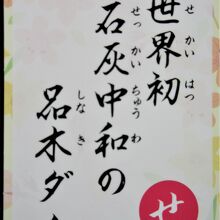 世界初
せかいはつ
石灰中和の
せっかいちゅうわ
品木ダ
しなき
せ